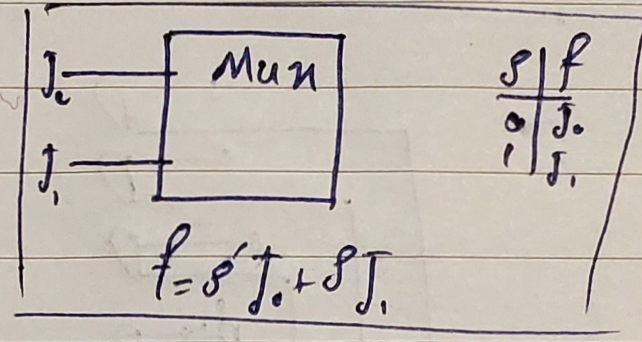 I₀ Mux
I₁
S f
0 I₀
1 I₁
f = S' I₀ + S I₁